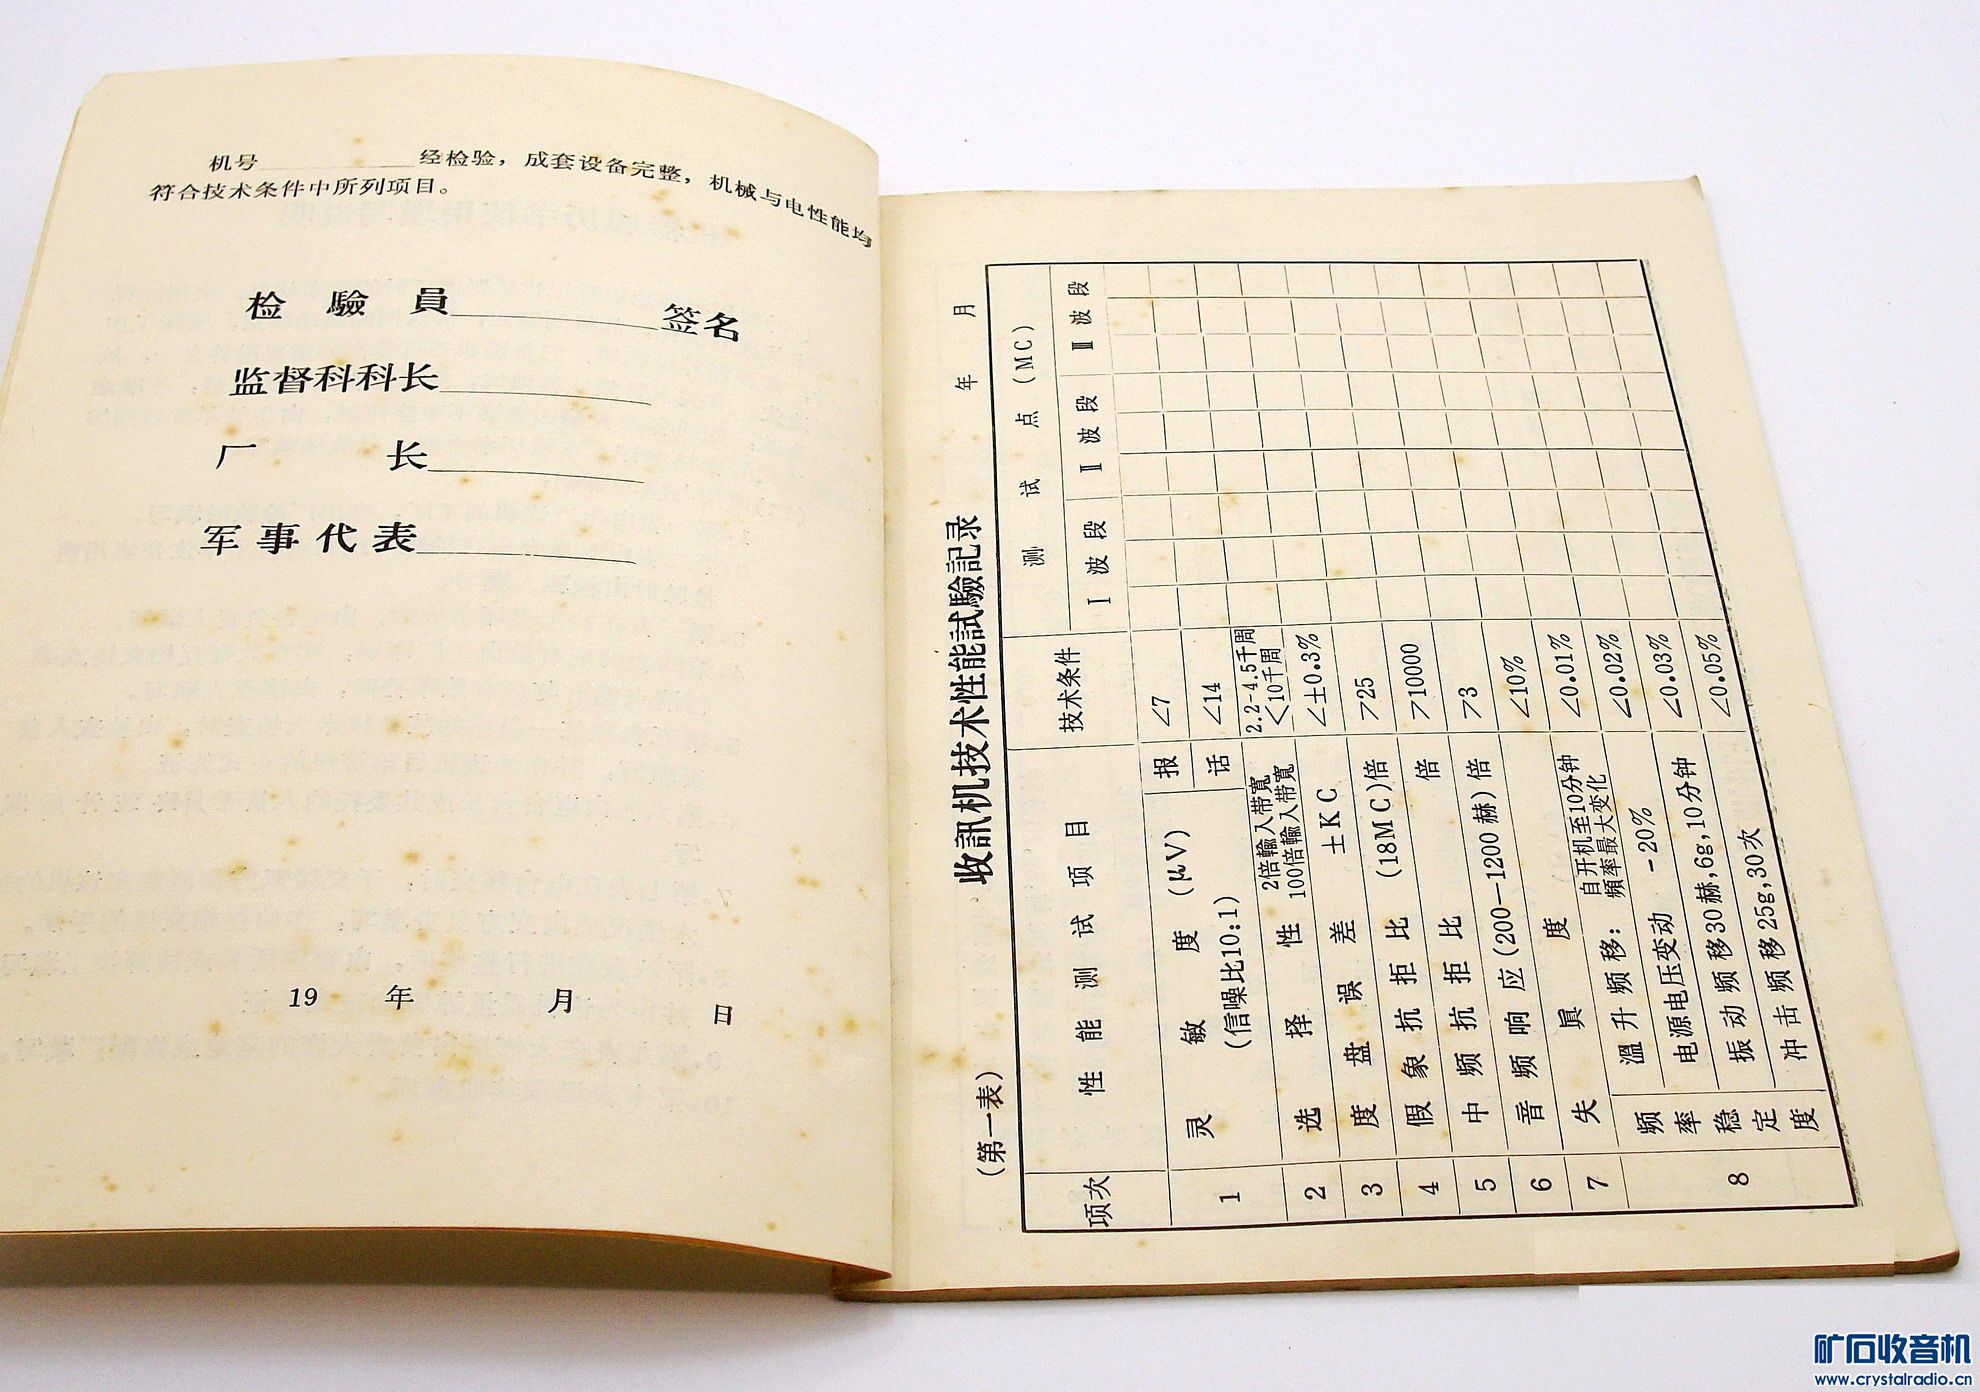 机号 经检验，成套设备完整，机械与电性能均
符合技术条件中所列项目。
检驗員 签名
监督科科长
厂 长
军事代表
19 年 月 日
(第一表)
收訊机技术性能試驗記录
年 月
项次 性能测试项目 技术条件 测试点(MC)
Ⅰ波段 Ⅱ波段 Ⅲ波段
1 灵敏度(μV) 报 ∠7
(信噪比10:1) 话 ∠14
2 选择性 2倍輸入带寬 2.2-4.5千周
100倍輸入带寬 ＜10千周
3 度盘误差 ±KC ∠±0.3%
4 假象抗拒比 (18MC)倍 ＞25
5 中频抗拒比 倍 ＞10000
6 音频响应(200—1200赫)倍 ＞3
7 失眞度 ∠10%
8 频率稳定度
溫升频移: 自开机至10分钟 ∠0.01%
頻率最大变化 ∠0.02%
电源电压变动 -20% ∠0.03%
振动频移30赫,6g,10分钟 ∠0.05%
冲击频移25g,30次
矿石收音机
www.crystalradio.cn